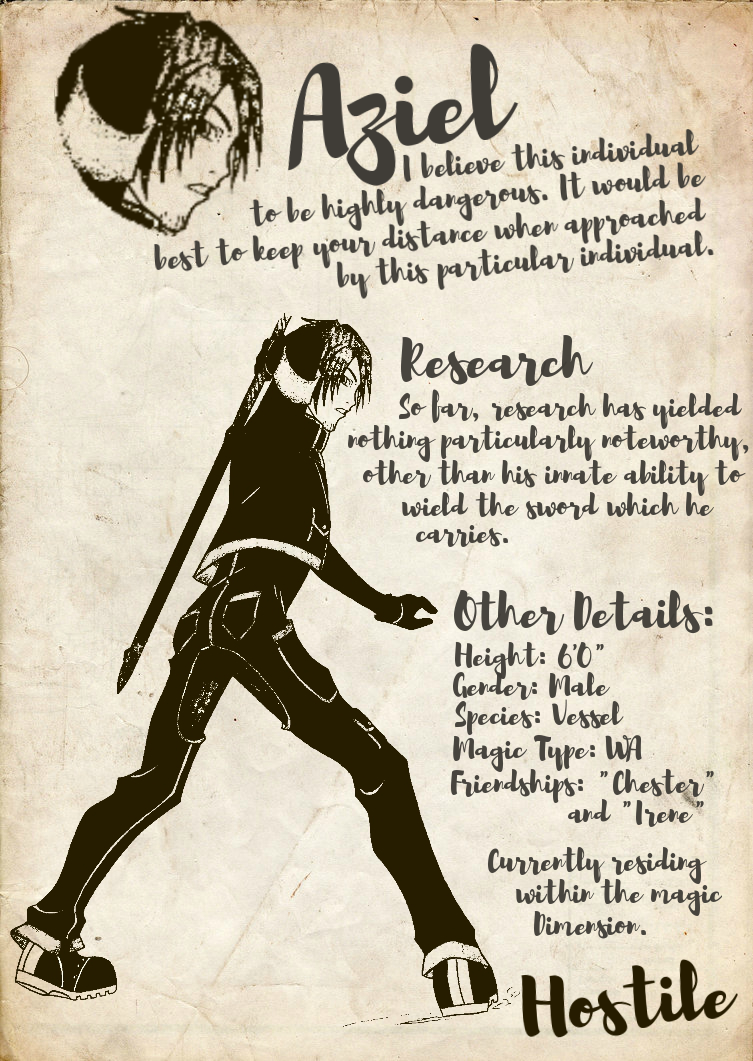 Aziel
I believe this individual
to be highly dangerous. It would be
best to keep your distance when approached
by this particular individual.
Research
So far, research has yielded
nothing particularly noteworthy,
other than his innate ability to
wield the sword which he
carries.
Other Details:
Height: 6'0"
Gender: Male
Species: Vessel
Magic Type: WA
Friendships: "Chester"
and "Irene"
Currently residing
within the magic
Dimension.
Hostile